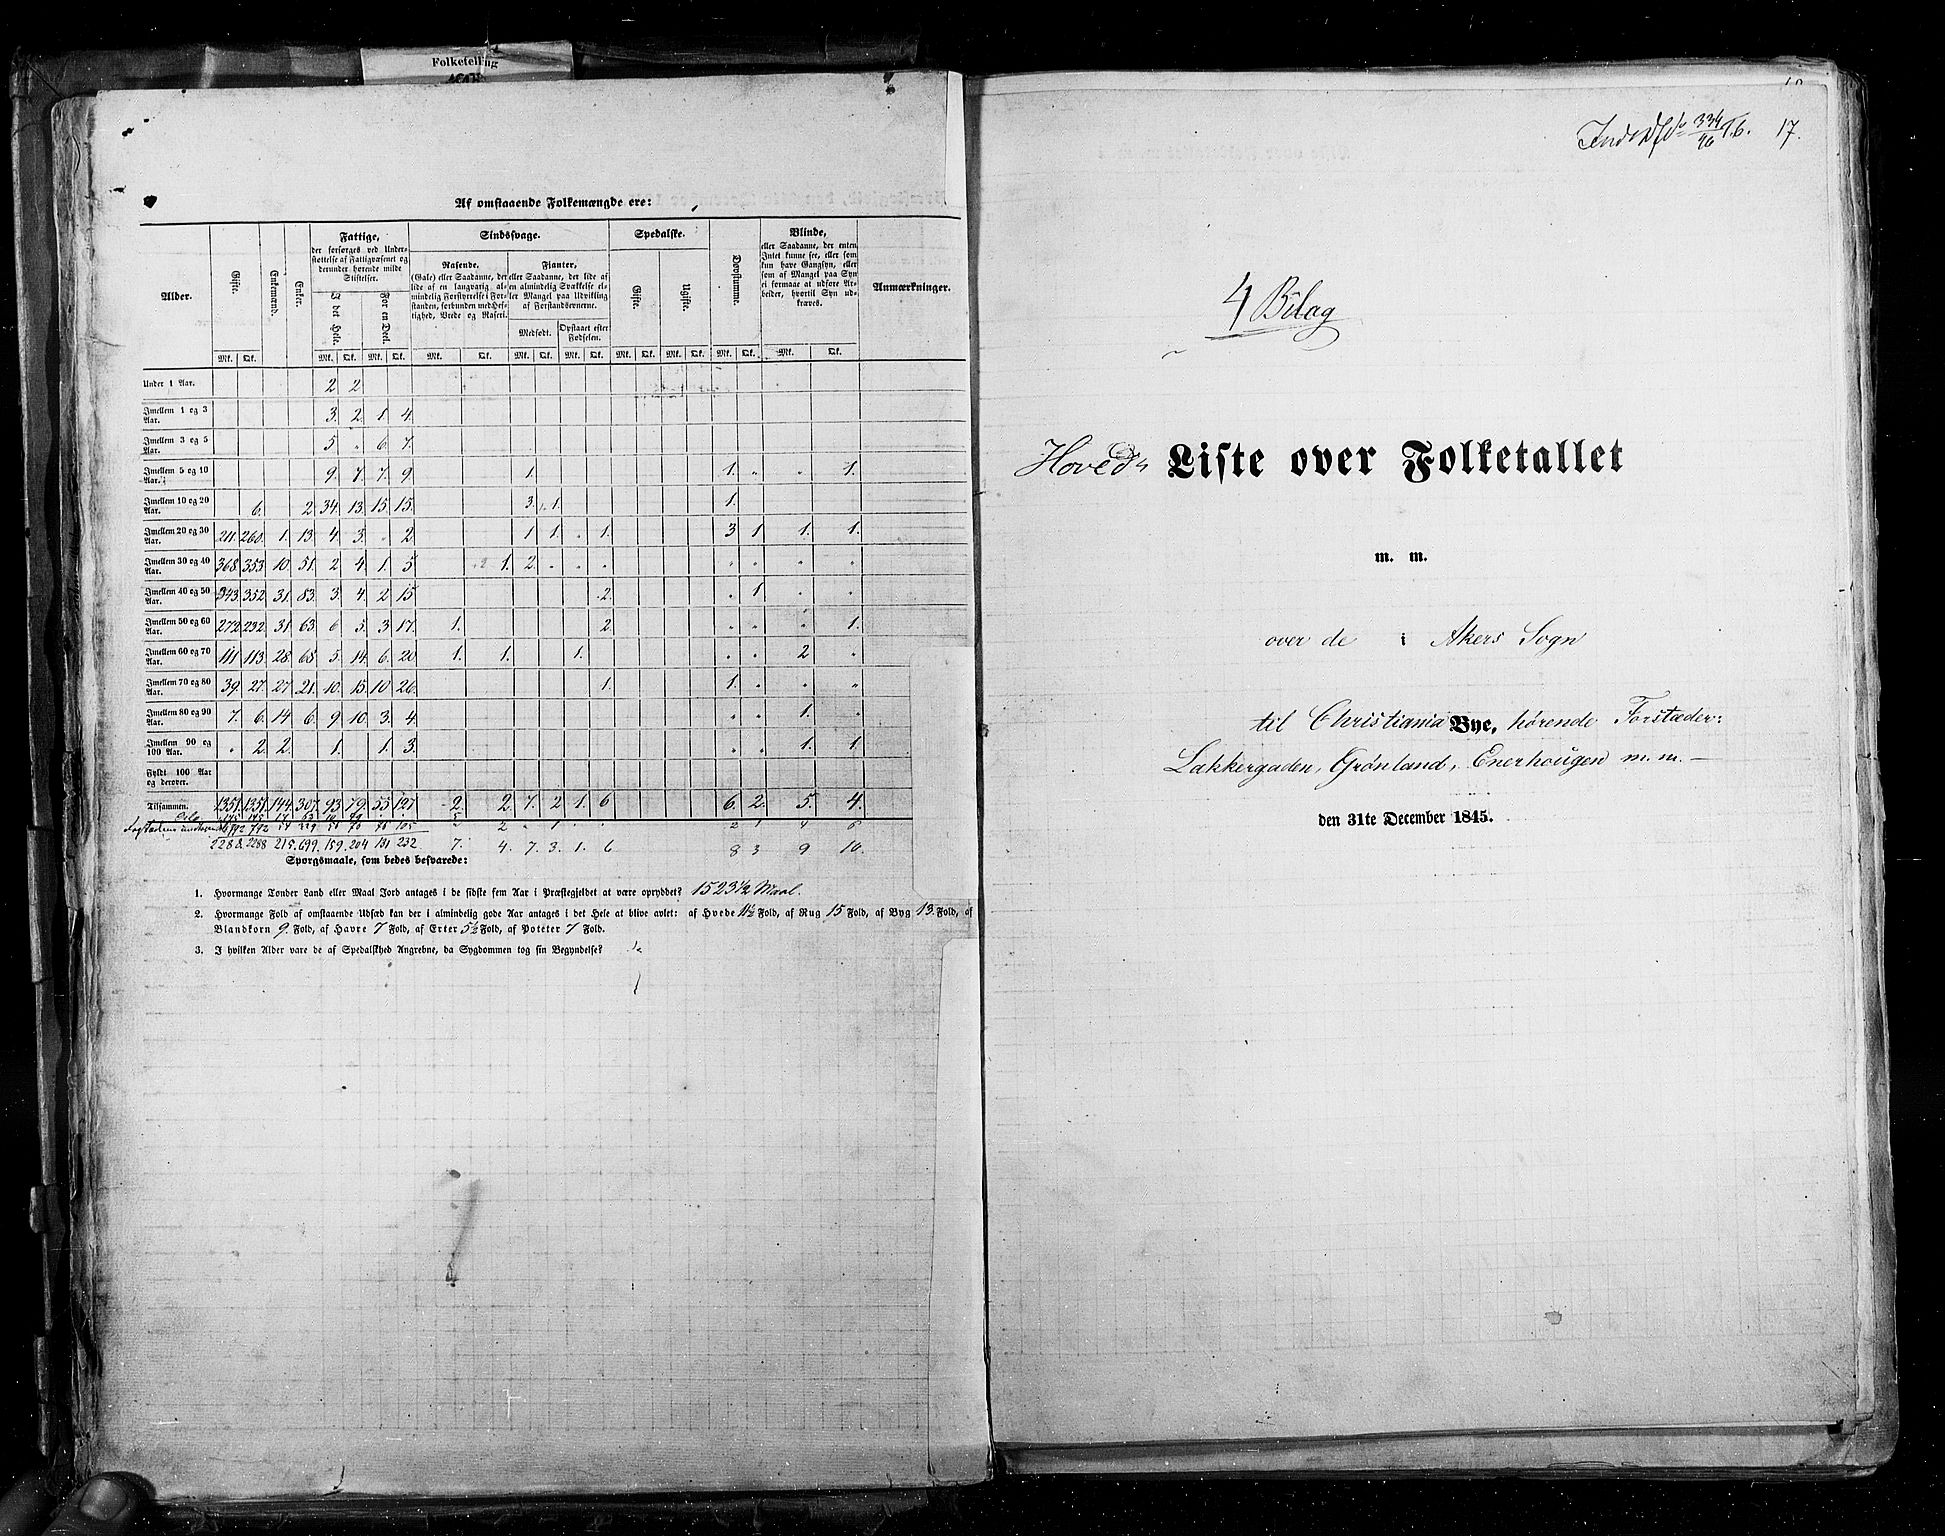 Folketelling
Af omstaaende Folkemængde ere:
Alder.
Gifte.
Enkemænd.
Enker.
Fattige,
der forsørges ved Under-
støttelse af Fattigvæsenet og
derunder hørende milde
Stiftelser.
I det Hele.
For en Deel.
Sindssvage.
Rasende.
(Gale) eller Saadanne, der
lide af en langvarig al-
mindelig Forstyrrelse i For-
standen, forbunden med Hef-
tighed, Vrede og Raseri.
Fjanter,
eller Saadanne, der lide af
en almindelig Svækkelse el-
ler Mangel paa Udvikling
af Forstandsevnerne.
Medfødt.
Opstaaet efter
Fødselen.
Spedalske.
Gifte.
Ugifte.
Døvstumme.
Blinde,
eller Saadanne, der enten
Intet kunne see, eller som
kun have Gangsyn, eller
som af Mangel paa Syn
ei formaae at udføre Ar-
beider, hvortil Syn ud-
kræves.
Anmærkninger.
Mk. Qk. Mk. Qk. Mk. Qk. Mk. Qk. Mk. Qk. Mk. Qk. Mk. Qk. Mk. Qk. Mk. Qk. Mk. Qk.
Under 1 Aar. 2 2
Imellem 1 og 3 Aar. 3. 2. 1. 4.
Imellem 3 og 5 Aar. 5 " 6. 7.
Imellem 5 og 10 Aar. 9. 7. 7. 9 1. 1. " " 1.
Imellem 10 og 20 Aar. 6. 2 34. 13. 15. 15. 3. 1. 1.
Imellem 20 og 30 Aar. 211. 260. 1. 13. 4. 3. " 2 1 1. " 1. 3 1 1. 1.
Imellem 30 og 40 Aar. 368. 353. 10. 51. 2 4. 1. 5 1. 2. " " " " " " "
Imellem 40 og 50 Aar. 343. 352. 31. 83. 3. 4. 2 15 2. " 1 " "
Imellem 50 og 60 Aar. 272. 232. 31. 63. 6 5. 3 17. 1. 2. " " " 1.
Imellem 60 og 70 Aar. 111 113. 28. 65. 5. 14. 6. 20. 1. 1. 1. " " 2 "
Imellem 70 og 80 Aar. 39. 27. 27. 21. 10. 15. 10 26. 1. 1. " " "
Imellem 80 og 90 Aar. 7. 6. 14 6. 9 10. 3. 4. " " 1. "
Imellem 90 og 100 Aar. " 2 2. 1. 1. 3. " " 1. 1.
Fyldt 100 Aar og derover.
Tilsammen. 1351. 1351. 144. 307. 93. 79. 55. 127 2. 2. 7. 2 1. 6 6. 2. 5. 4.
2288. 2288 215. 699. 159. 204 131 232. 7. 4. 7. 3. 1. 6 8 3 9 10.
Spørgsmaale, som bedes besvarede:
1. Hvormange Tønder Land eller Maal Jord antages i de sidste fem Aar i Præstegjeldet at være opryddet? 1523½ Maal.
2. Hvormange Fold af omstaaende Udsæd kan der i almindelig gode Aar antages i det Hele at blive avlet: af Hvede 11½ Fold, af Rug 15 Fold, af Byg 13. Fold, af
Blandkorn 9. Fold, af Havre 7 Fold, af Erter 5½ Fold, af Poteter 7 Fold.
3. I hvilken Alder vare de af Spedalskhed Angrebne, da Sygdommen tog sin Begyndelse?
334
17.
4 Bilag
Hoved- Liste over Folketallet
m. m.
over de i Akers Sogn
til Christiania Bye, hørende Forstæder:
Lakkergaden, Grønland, Enerhougen m. m. —
den 31te December 1845.